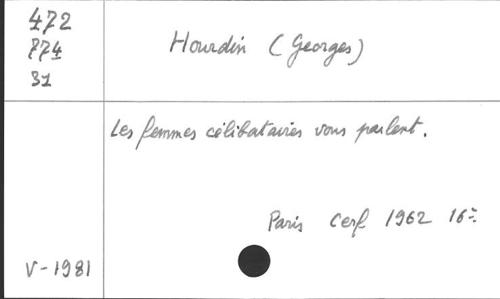 472
774
31
Hourdin (Georges)
Les femmes célibataires vous parlent.
Paris Cerf 1962 16º
V-1981